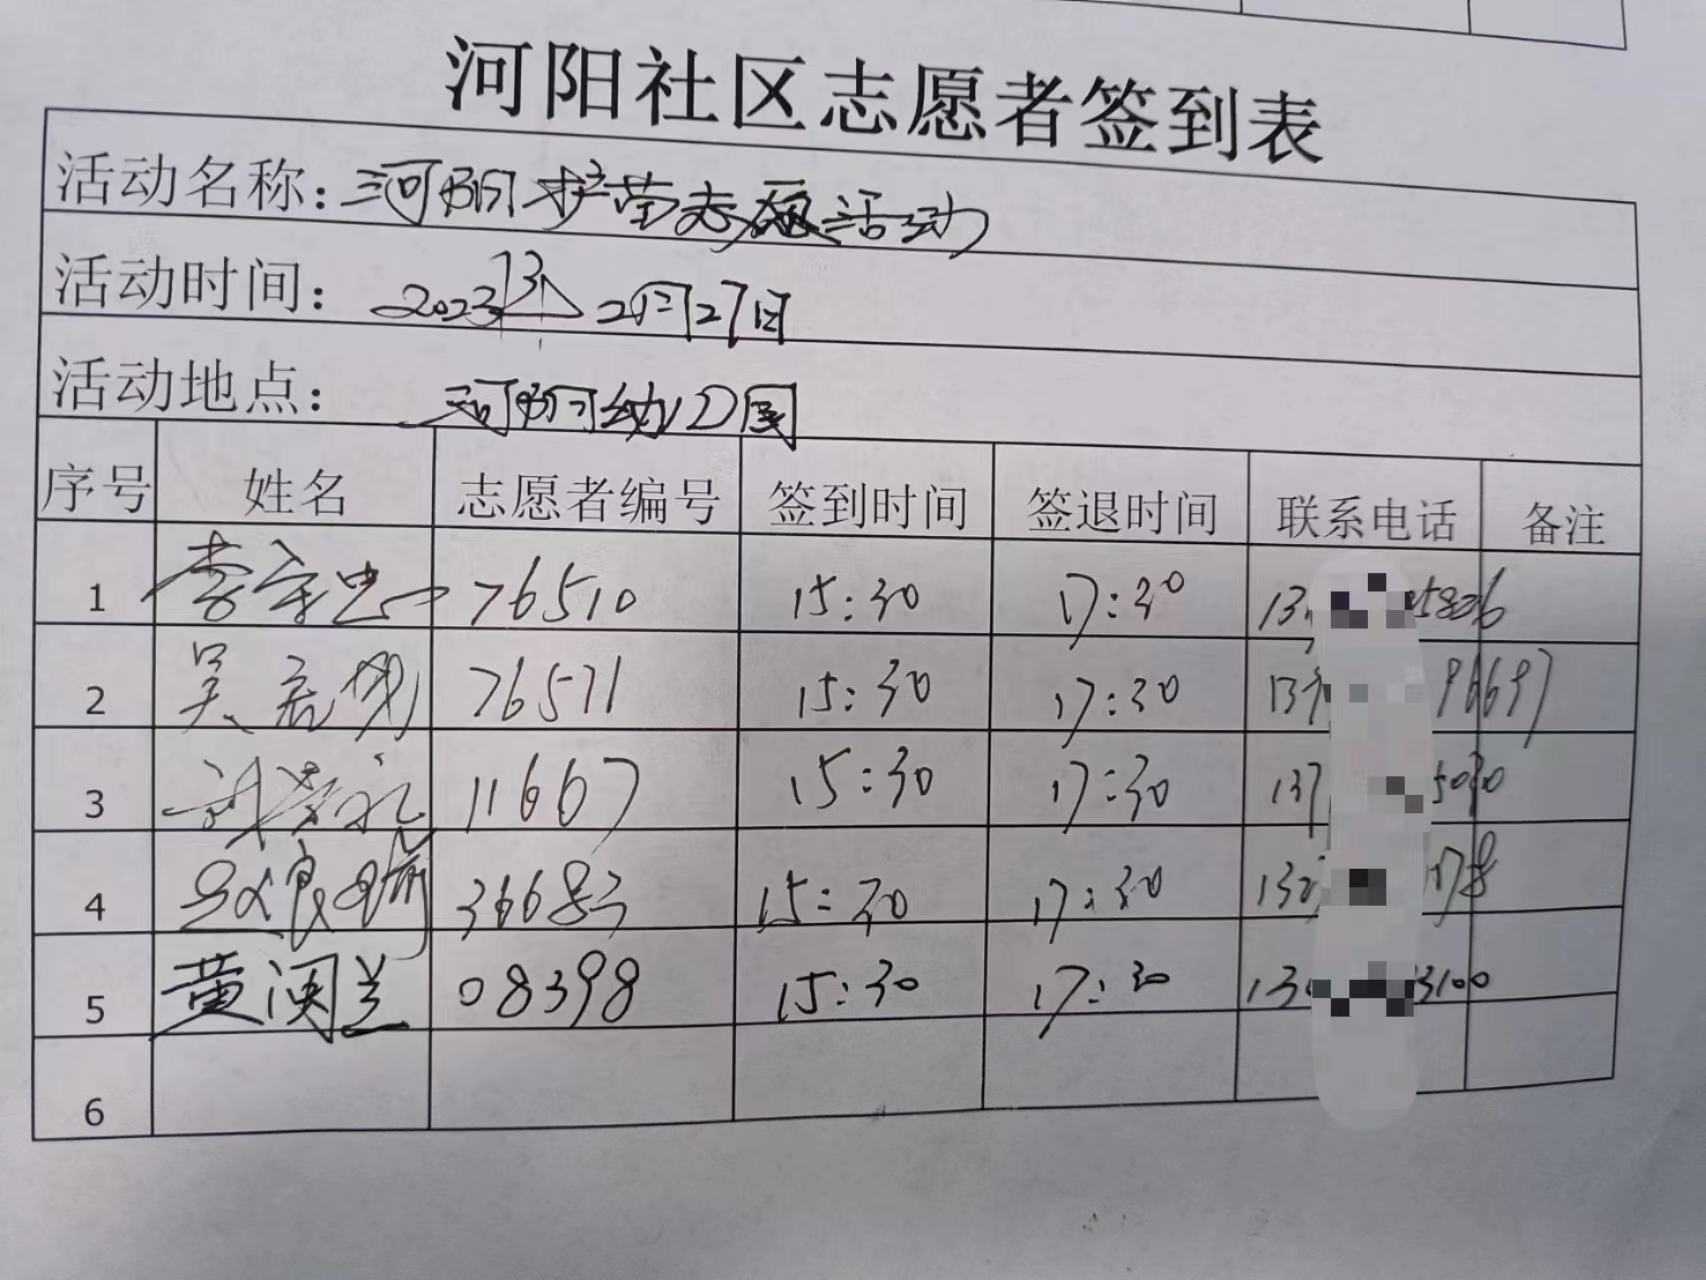 河阳社区志愿者签到表
活动名称：河阳护苗志愿活动
活动时间：2023年2月27日
活动地点：河阳幼儿园
序号 姓名 志愿者编号 签到时间 签退时间 联系电话 备注
1 李守忠 76510 15:30 17:30
2 吴 76571 15:30 17:30 96697
3 11667 15:30 17:30 137 5030
4 36683 15:30 17:30
5 黄润兰 08398 15:30 17:30 3100
6